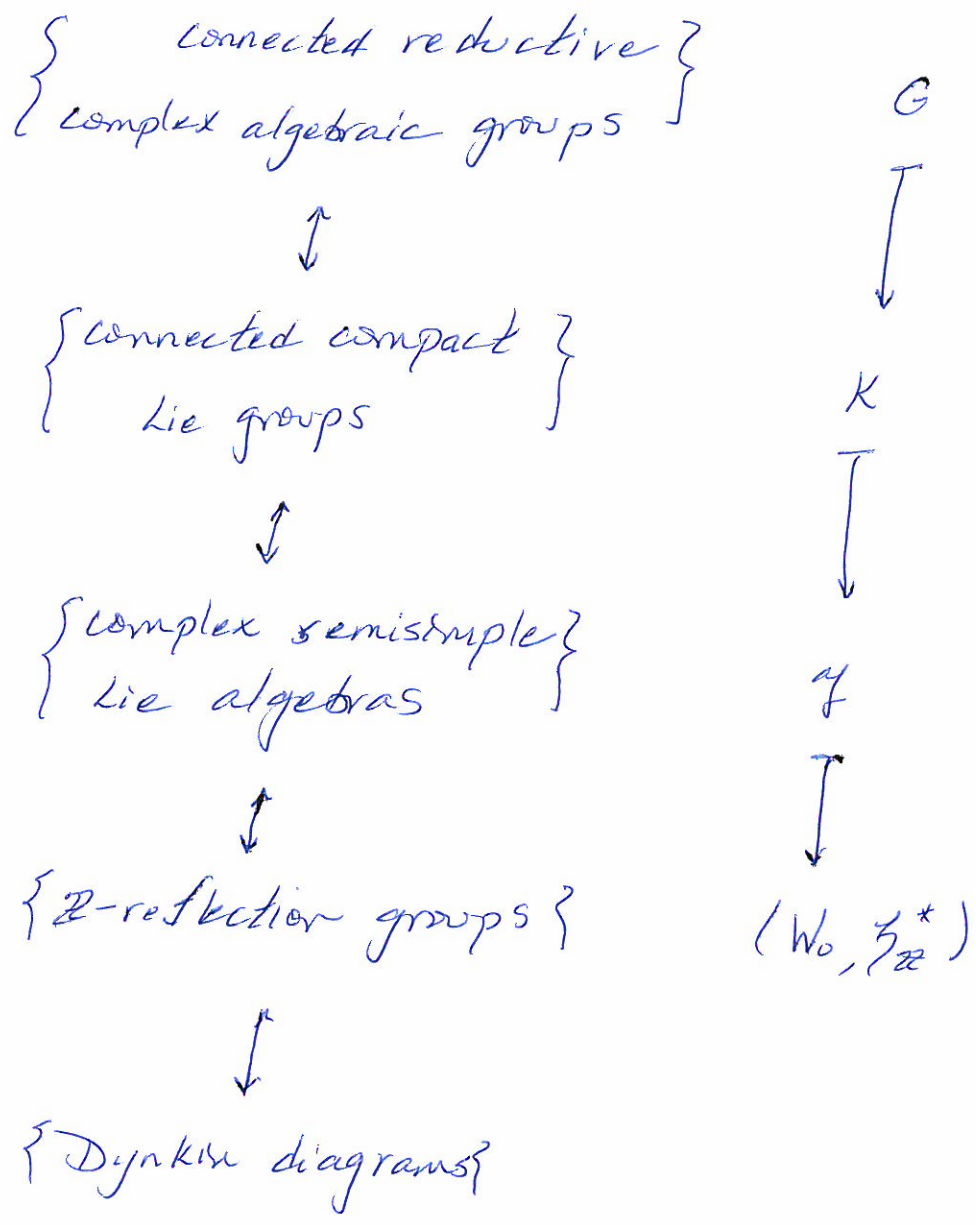 { connected reductive }
{ complex algebraic groups }
G
↕
↦
{ connected compact }
{ Lie groups }
K
↕
↦
{ complex semisimple }
{ Lie algebras }
𝔤
↕
↦
{ ℤ-reflection groups }
(W₀, 𝔥_ℤ^*)
↕
{ Dynkin diagrams }